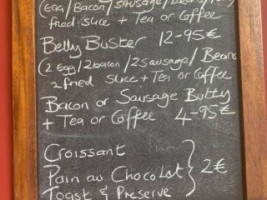 (Egg/Bacon/Sausage/
fried slice + Tea or Coffee
Belly Buster 12-95€
(2 Egg/2bacon/2sausage/Beans
2 fried slice + Tea or Coffee
Bacon or Sausage Butty
+ Tea or Coffee 4-95€
Croissant
Pain au Chocolat } 2€
Toast & Preserve